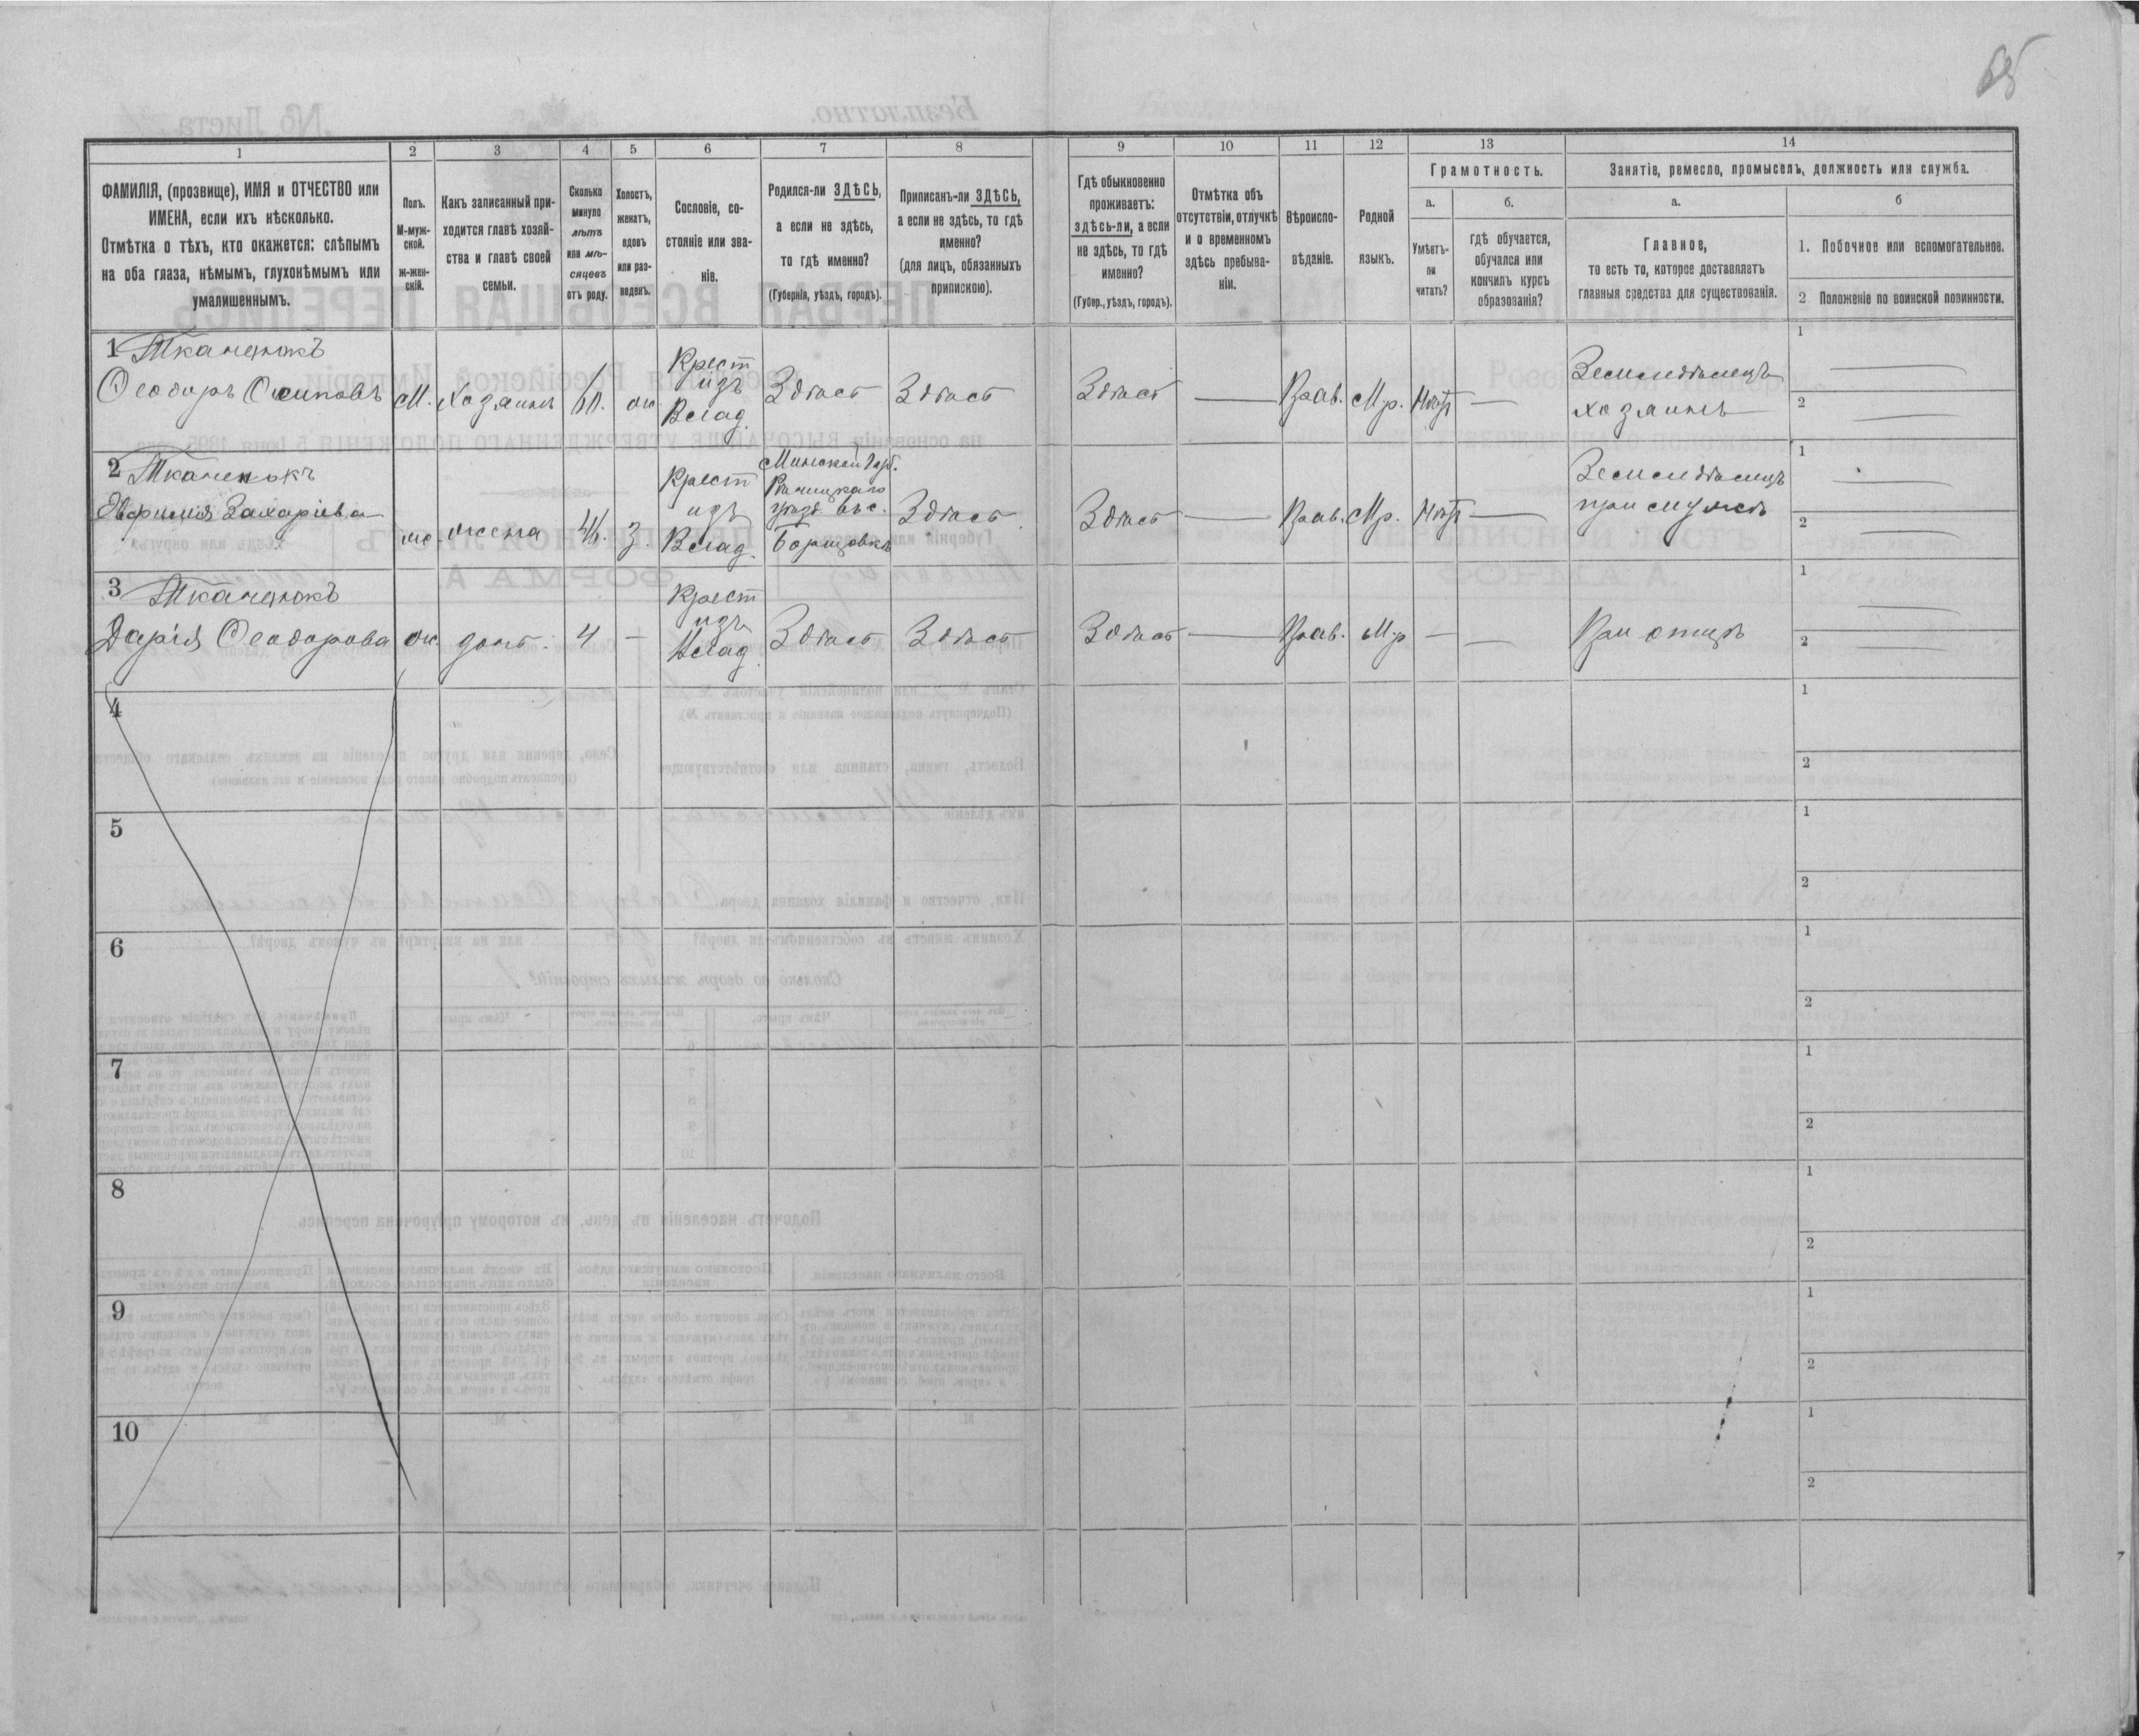 65
1
2
3
4
5
6
7
8
9
10
11
12
13
14
ФАМИЛІЯ, (прозвище), ИМЯ и ОТЧЕСТВО или
ИМЕНА, если ихъ нѣсколько.
Отмѣтка о тѣхъ, кто окажется: слѣпымъ
на оба глаза, нѣмымъ, глухонѣмымъ или
умалишеннымъ.
Полъ.
М-муж-
ской.
ж-жен-
скій.
Какъ записанный при-
ходится главѣ хозяй-
ства и главѣ своей
семьи.
Сколько
минуло
лѣтъ
или мѣ-
сяцевъ
отъ роду.
Холостъ,
женатъ,
вдовъ
или раз-
веденъ.
Сословіе, со-
стояніе или зва-
ніе.
Родился-ли ЗДѢСЬ,
а если не здѣсь,
то гдѣ именно?
(Губернія, уѣздъ, городъ).
Приписанъ-ли ЗДѢСЬ,
а если не здѣсь, то гдѣ
именно?
(для лицъ, обязанныхъ
припискою).
Гдѣ обыкновенно
проживаетъ:
здѣсь-ли, а если
не здѣсь, то гдѣ
именно?
(Губер., уѣздъ, городъ).
Отмѣтка объ
отсутствіи, отлучкѣ
и о временномъ
здѣсь пребыва-
ніи.
Вѣроиспо-
вѣданіе.
Родной
языкъ.
Грамотность.
а.
Умѣетъ-
ли
читать?
б.
гдѣ обучается,
обучался или
кончилъ курсъ
образованія?
Занятіе, ремесло, промыселъ, должность или служба.
а.
Главное,
то есть то, которое доставляетъ
главныя средства для существованія.
б
1. Побочное или вспомогательное.
2 Положеніе по воинской повинности.
1 Ткаченокъ
Ѳеодоръ Осиповъ
М.
Хозяинъ
60.
ж
Крест
изъ
Влад.
Здѣсь
Здѣсь
Здѣсь
Прав.
Мр.
Нѣтъ
Земледѣлецъ
хозяинъ
1
2
2 Ткаченокъ
Евфимія Захаріева
ж
жена
44.
З.
Крест
изъ
Влад.
Минской Губ.
Рѣчицкаго
уѣзд. въ с.
Борщовкѣ
Здѣсь
Здѣсь
Прав.
Мр.
Нѣтъ
Земледѣлецъ
при мужѣ
1
2
3 Ткаченокъ
Дарія Ѳеодорова
ж.
дочь
4
Крест
изъ
Влад.
Здѣсь
Здѣсь
Здѣсь
Прав.
Мр
При отцѣ
1
2
4
1
2
5
1
2
6
1
2
7
1
2
8
1
2
9
1
2
10
1
2